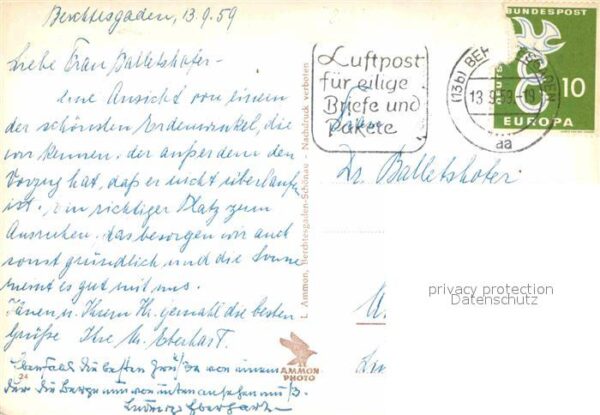 Berchtesgaden, 13.9.59
Liebe Frau Balletshofer -
eine Ansicht von einem
der schönsten Erdenwinkel, die
wir kennen, der außerdem den
Vorzug hat, daß er nicht überlaufen
ist. Ein richtiger Platz zum
Ausruhen. das besorgen wir auch
sonst gründlich und die Sonne
meint es gut mit uns.
Ihnen u. Ihrem Hr. Gemahl die besten
Grüße Ihre M. Eberhart.
Ebenfalls die besten Grüße von einem
der die Berge nur von unten ansehen muß.
Ludwig Eberhart
24
L. Ammon, Berchtesgaden-Schönau - Nachdruck verboten
AMMON
PHOTO
Luftpost
für eilige
Briefe und
Pakete
(13b) BERCHTESGADEN
13.9.59.
aa
DEUTSCHE BUNDESPOST
10
EUROPA
Frau
Dr. Balletshofer
privacy protection
Datenschutz